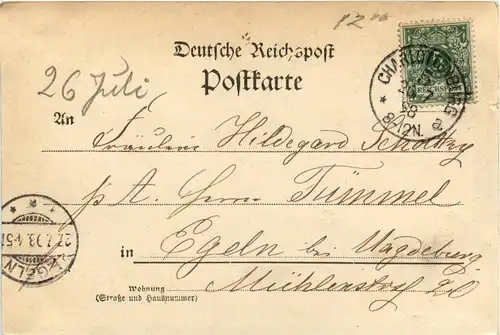 12 00
Deutsche Reichspost
Postkarte
26 Juli
An
Fräulein Hildegard
p. A. Herrn Tümmel
in Egeln bei Magdeburg
Wohnung
(Straße und Hausnummer)
CHARLOTTENBURG
8-12N.
a
REICHSPOST
EGELN
27.7.98.4-5N